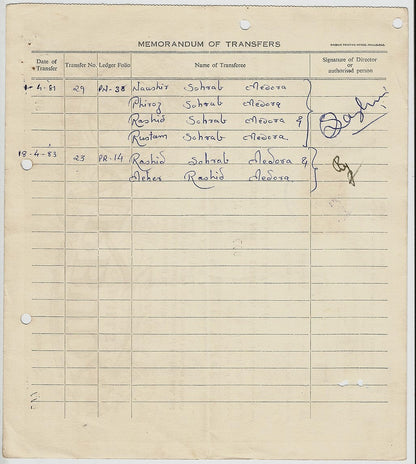 MEMORANDUM OF TRANSFERS
Date of Transfer Transfer No. Ledger Folio Name of Transferee Signature of Director or authorised person
-4-81 29 38 Naushir Sohrab Medora
Phiroz Sohrab Medora
Rashid Sohrab Medora &
Rustam Sohrab Medora.
18-4-83 23 PR-14 Rashid Sohrab Medora &
Meher Rashid Medora.